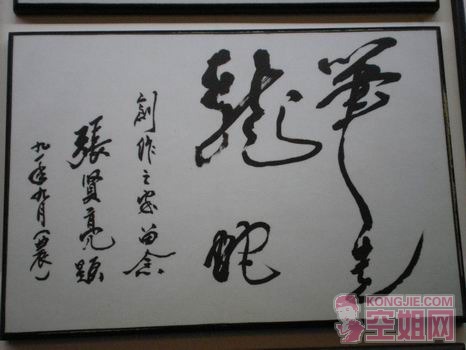 筆走
龍蛇
創作之家留念
張賢亮題
九一年九月(農)
KONGJIE.COM
空姐网